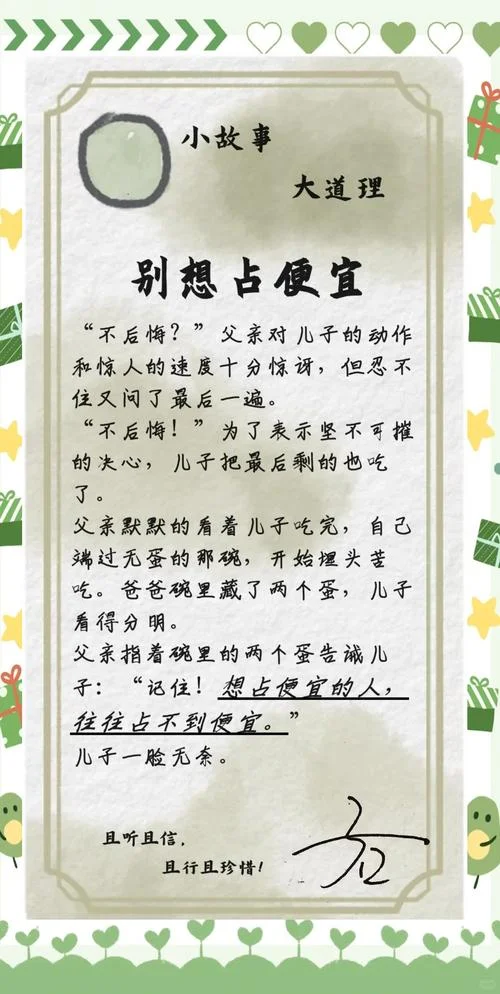 小故事
大道理
别想占便宜
“不后悔？”父亲对儿子的动作
和惊人的速度十分惊讶，但忍不
住又问了最后一遍。
“不后悔！”为了表示坚不可摧
的决心，儿子把最后剩的也吃
了。
父亲默默的看着儿子吃完，自己
端过无蛋的那碗，开始埋头苦
吃。爸爸碗里藏了两个蛋，儿子
看得分明。
父亲指着碗里的两个蛋告诫儿
子：“记住！想占便宜的人，
往往占不到便宜。”
儿子一脸无奈。
且听且信，
且行且珍惜！